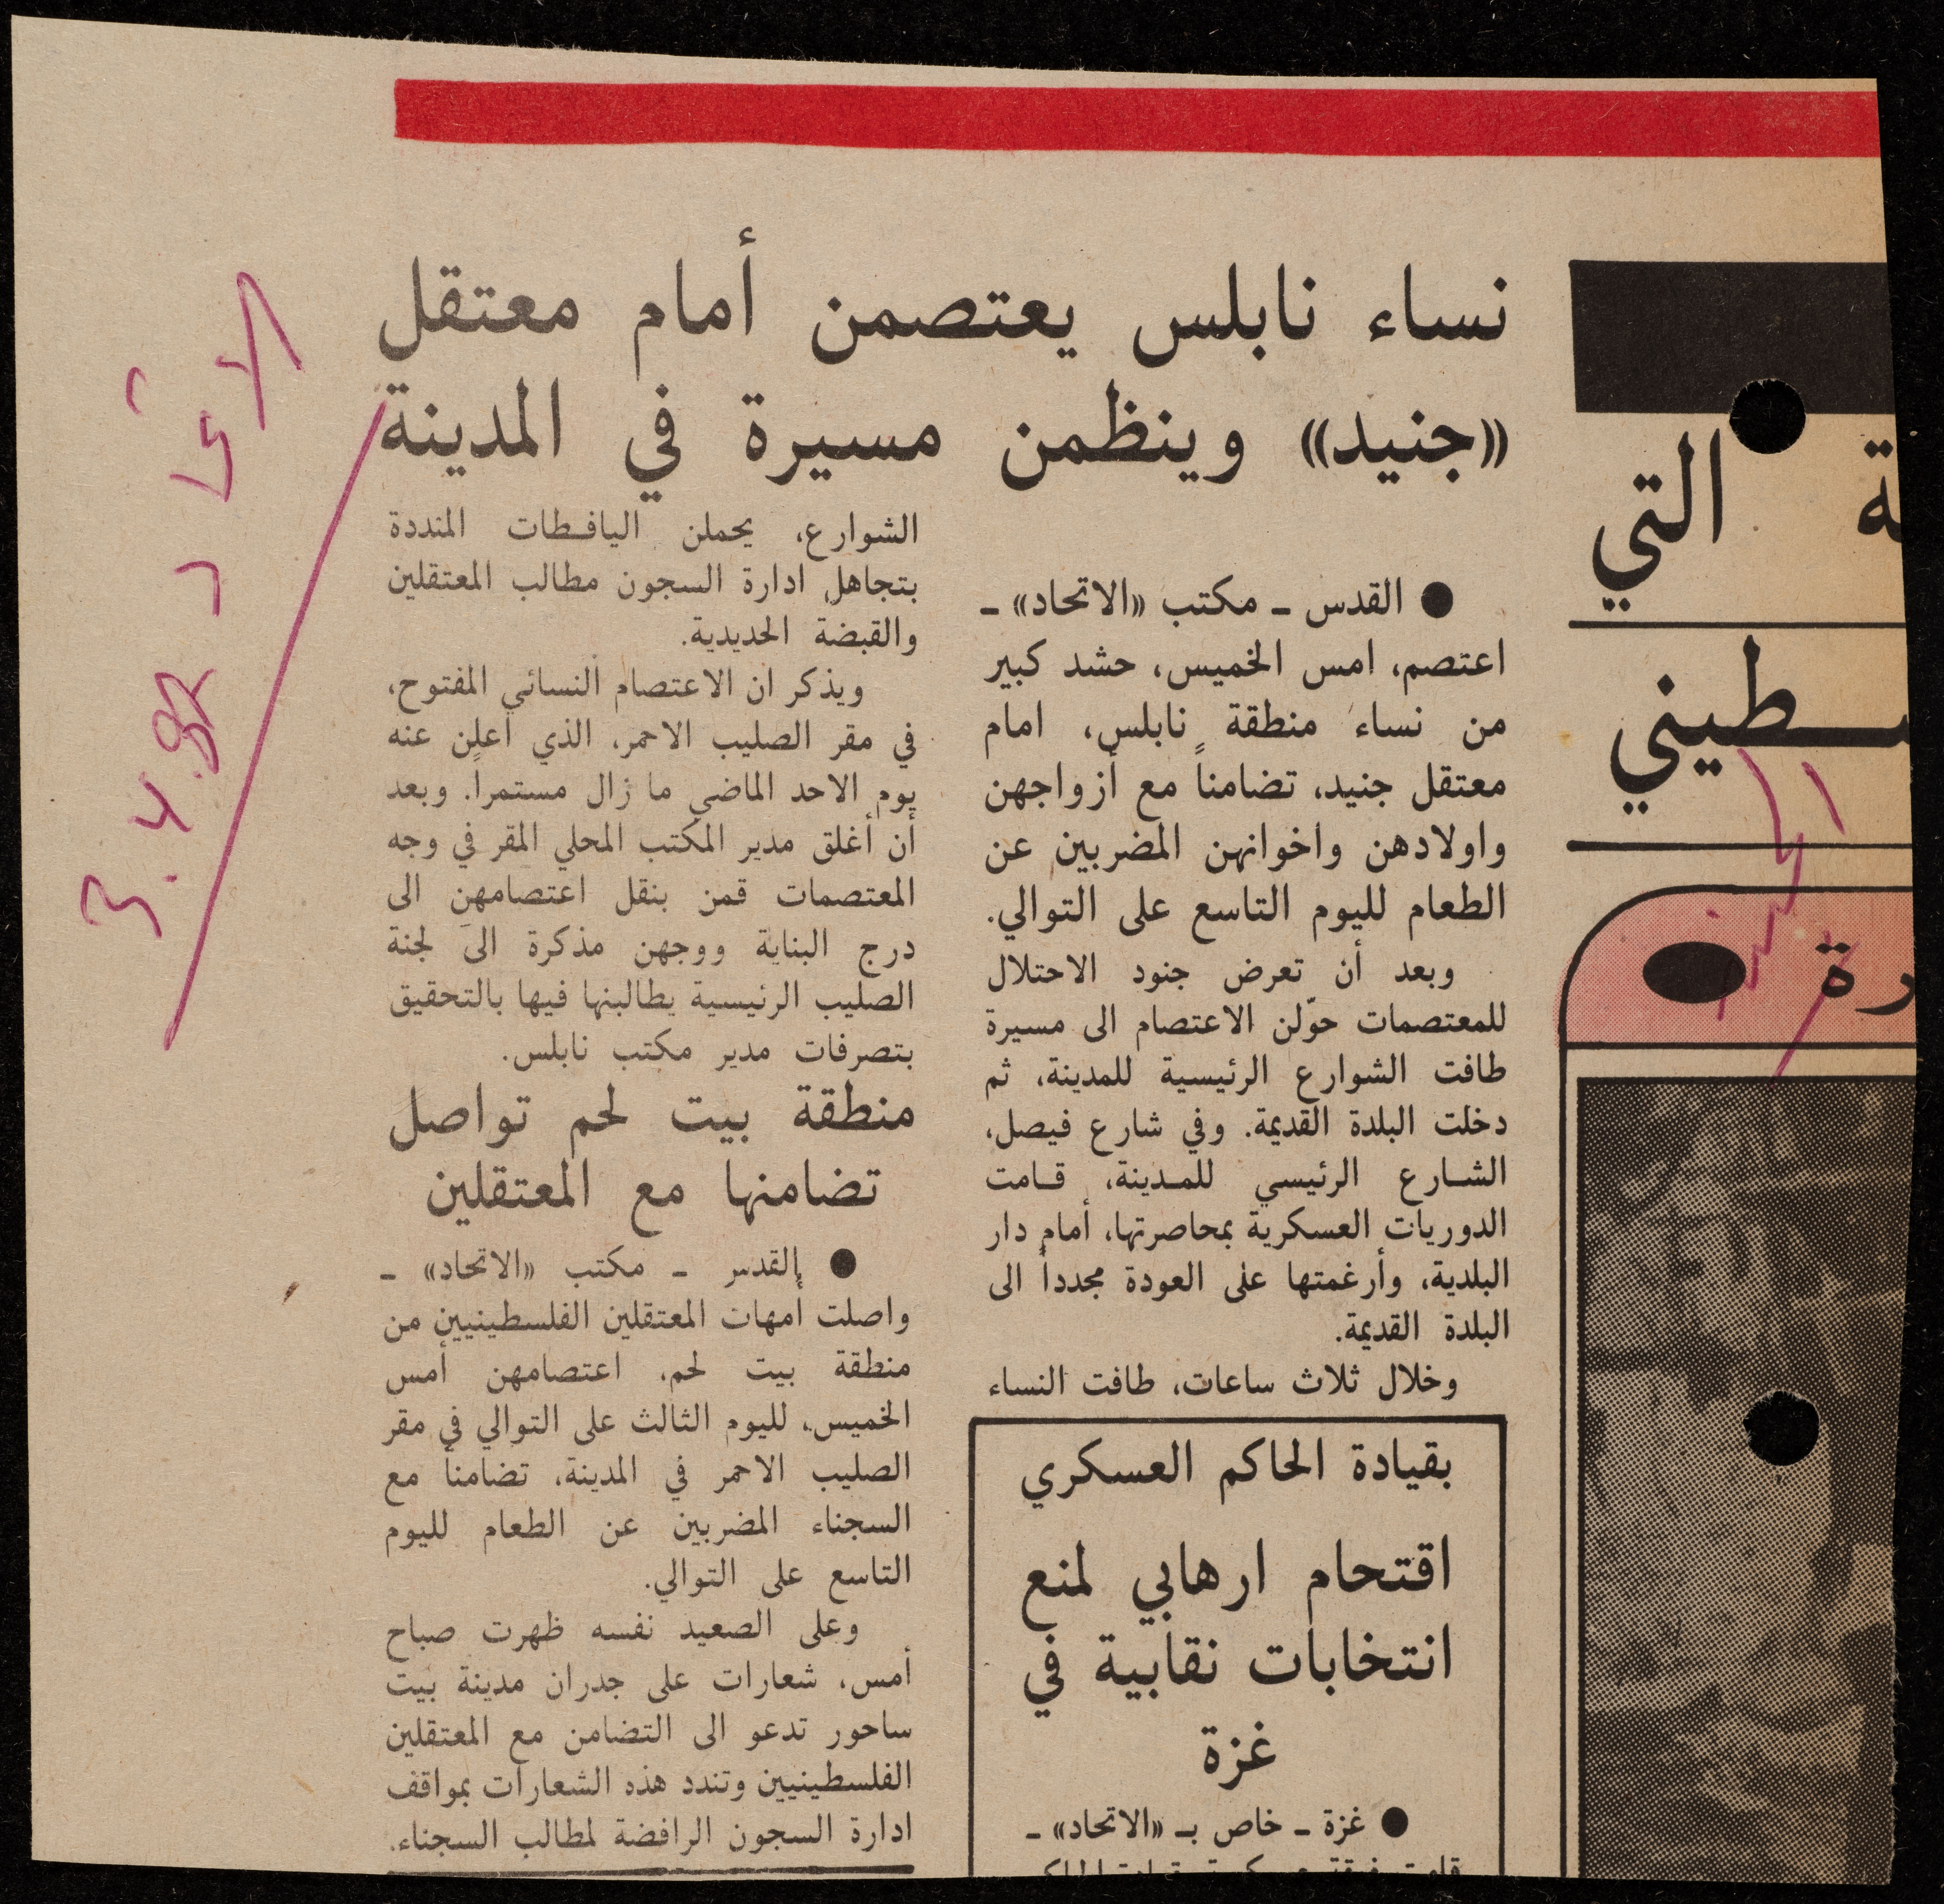 نساء نابلس يعتصمن أمام معتقل
«جنيد» وينظمن مسيرة في المدينة
● القدس ـ مكتب «الاتحاد» ـ
اعتصم، امس الخميس، حشد كبير
من نساء منطقة نابلس، امام
معتقل جنيد، تضامناً مع أزواجهن
واولادهن واخوانهن المضربين عن
الطعام لليوم التاسع على التوالي.
وبعد أن تعرض جنود الاحتلال
للمعتصمات حوّلن الاعتصام الى مسيرة
طافت الشوارع الرئيسية للمدينة، ثم
دخلت البلدة القديمة. وفي شارع فيصل،
الشارع الرئيسي للمدينة، قامت
الدوريات العسكرية بمحاصرتها، أمام دار
البلدية، وأرغمتها على العودة مجدداً الى
البلدة القديمة.
وخلال ثلاث ساعات، طافت النساء
الشوارع، يحملن اليافطات المنددة
بتجاهل ادارة السجون مطالب المعتقلين
والقبضة الحديدية.
ويذكر ان الاعتصام النسائي المفتوح،
في مقر الصليب الاحمر، الذي اعلن عنه
يوم الاحد الماضي ما زال مستمراً. وبعد
أن أغلق مدير المكتب المحلي المقر في وجه
المعتصمات قمن بنقل اعتصامهن الى
درج البناية ووجهن مذكرة الى لجنة
الصليب الرئيسية يطالبنها فيها بالتحقيق
بتصرفات مدير مكتب نابلس.
منطقة بيت لحم تواصل
تضامنها مع المعتقلين
● القدس ـ مكتب «الاتحاد» ـ
واصلت أمهات المعتقلين الفلسطينيين من
منطقة بيت لحم، اعتصامهن أمس
الخميس، لليوم الثالث على التوالي في مقر
الصليب الاحمر في المدينة، تضامناً مع
السجناء المضربين عن الطعام لليوم
التاسع على التوالي.
وعلى الصعيد نفسه ظهرت صباح
أمس، شعارات على جدران مدينة بيت
ساحور تدعو الى التضامن مع المعتقلين
الفلسطينيين وتندد هذه الشعارات بمواقف
ادارة السجون الرافضة لمطالب السجناء.
بقيادة الحاكم العسكري
اقتحام ارهابي لمنع
انتخابات نقابية في
غزة
● غزة ـ خاص بـ «الاتحاد» ـ
التي
الاتحاد
3.4.87